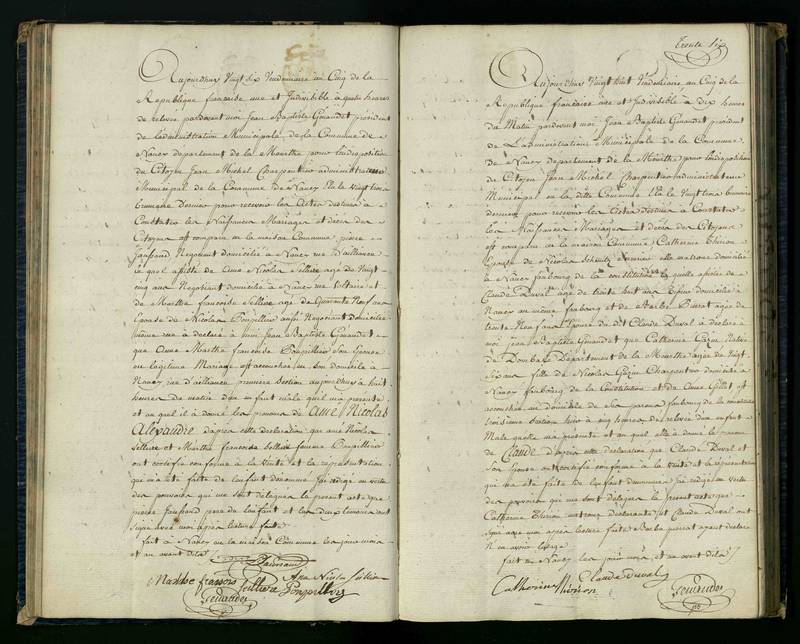 Aujourdhuy Vingt Six Vendemiaire an Cinq de la
Republique francaise une et Indivisible à quatre heures
de relevée pardevant moi Jean Baptiste president
de Ladministration Municipale de la Commune de
Nancy departement de la Meurthe pour lindisposition
du Citoyen Jean Michel Charpentier administrateur
Municipal de la Commune de Nancy Elu le Vingt trois
brumaire Dernier pour recevoir les Actes destinés à
Constater les Naissances Mariages et décès des
Citoyens est comparu en la maison Commune pierre
Negotiant domicilié à Nancy rue Dailliance
le quel assisté de Nicolas Sellier agé de Vingt
cinq ans Negotiant domicilié à Nancy rue Voltaire et
de Marthe francoise Sellier agé de Quarante Neuf ans
Epouse de Nicolas aussi Negotiant domicilié
même rue à déclaré à moi Jean Baptiste
que Anne Marthe francoise son Epouse
en légitime Mariage est accouchée en son domicile à
Nancy rue d'ailliance premiere section aujourdhuy à huit
heures du matin d'un enfant male quil ma présenté
et au quel il à donné les prenoms de Aimé Nicolas
Alexandre d'apres cette declaration que Nicolas
Sellier et Marthe francoise Sellier femme
ont certifié conforme à la vérité et la représentation
qui m'a été faite de lenfant denommé J'ai rédigé en vertu
des pouvoirs qui me sont délégués le present acte que
pierre pere de lenfant et les deux temoins ont
signé avec moi apres lecture faite
fait à Nancy en la maison Commune les jour mois
et an avant dits
Marthe francois Nicolas
Sellier
Trente Six
Aujourdhuy Vingt huit Vendémiaire an Cinq de la
Republique francaise une et Indivisible à dix heures
du Matin pardevant moi Jean Baptiste président
de L'administration Municipale de la Commune
de Nancy département de la Meurthe pour lindisposition
du Citoyen Jean Michel Charpentier administrateur
Municipal en la ditte Commune Elu le Vingt trois brumaire
dernier pour recevoir les Actes Destinés à Constater
les Naissances Mariages et décès des Citoyens
est comparue en la maison Commune Catherine Thirion
Epouse de Nicolas matrone domiciliée
à Nancy faubourg de la constitution la quelle assistée de
Claude Duval agé de trente huit ans domicilié à
Nancy au même faubourg et de Barbe agée de
trente Neuf ans Epouse du dit Claude Duval à déclaré à
moi Jean Baptiste que Catherine Native
de Dombasle Département de la Meurthe agée de Vingt
Six ans fille de Nicolas Charpentier domicilié à
Nancy faubourg de la Constitution et de Anne est
accouchée au domicile de ses parens faubourg de la constitution
troisieme Section hier à cinq heures de relevée d'un enfant
Male quelle ma présenté et au quel elle à donné le prenom
de Claude d'apres cette declaration que Claude Duval et
son Epouse ont certifié conforme à la vérité et la représentation
qui m'a été faite de lenfant denommé J'ai rédigé en vertu
des pouvoirs qui me sont délégués le present acte que
Catherine Thirion matrone declarante et Claude Duval ont
signé avec moi apres lecture faite Barbe ayant declaré
N'en avoir lusage
fait à Nancy les jour mois et an avant dits
Catherine Thirion Claude Duval